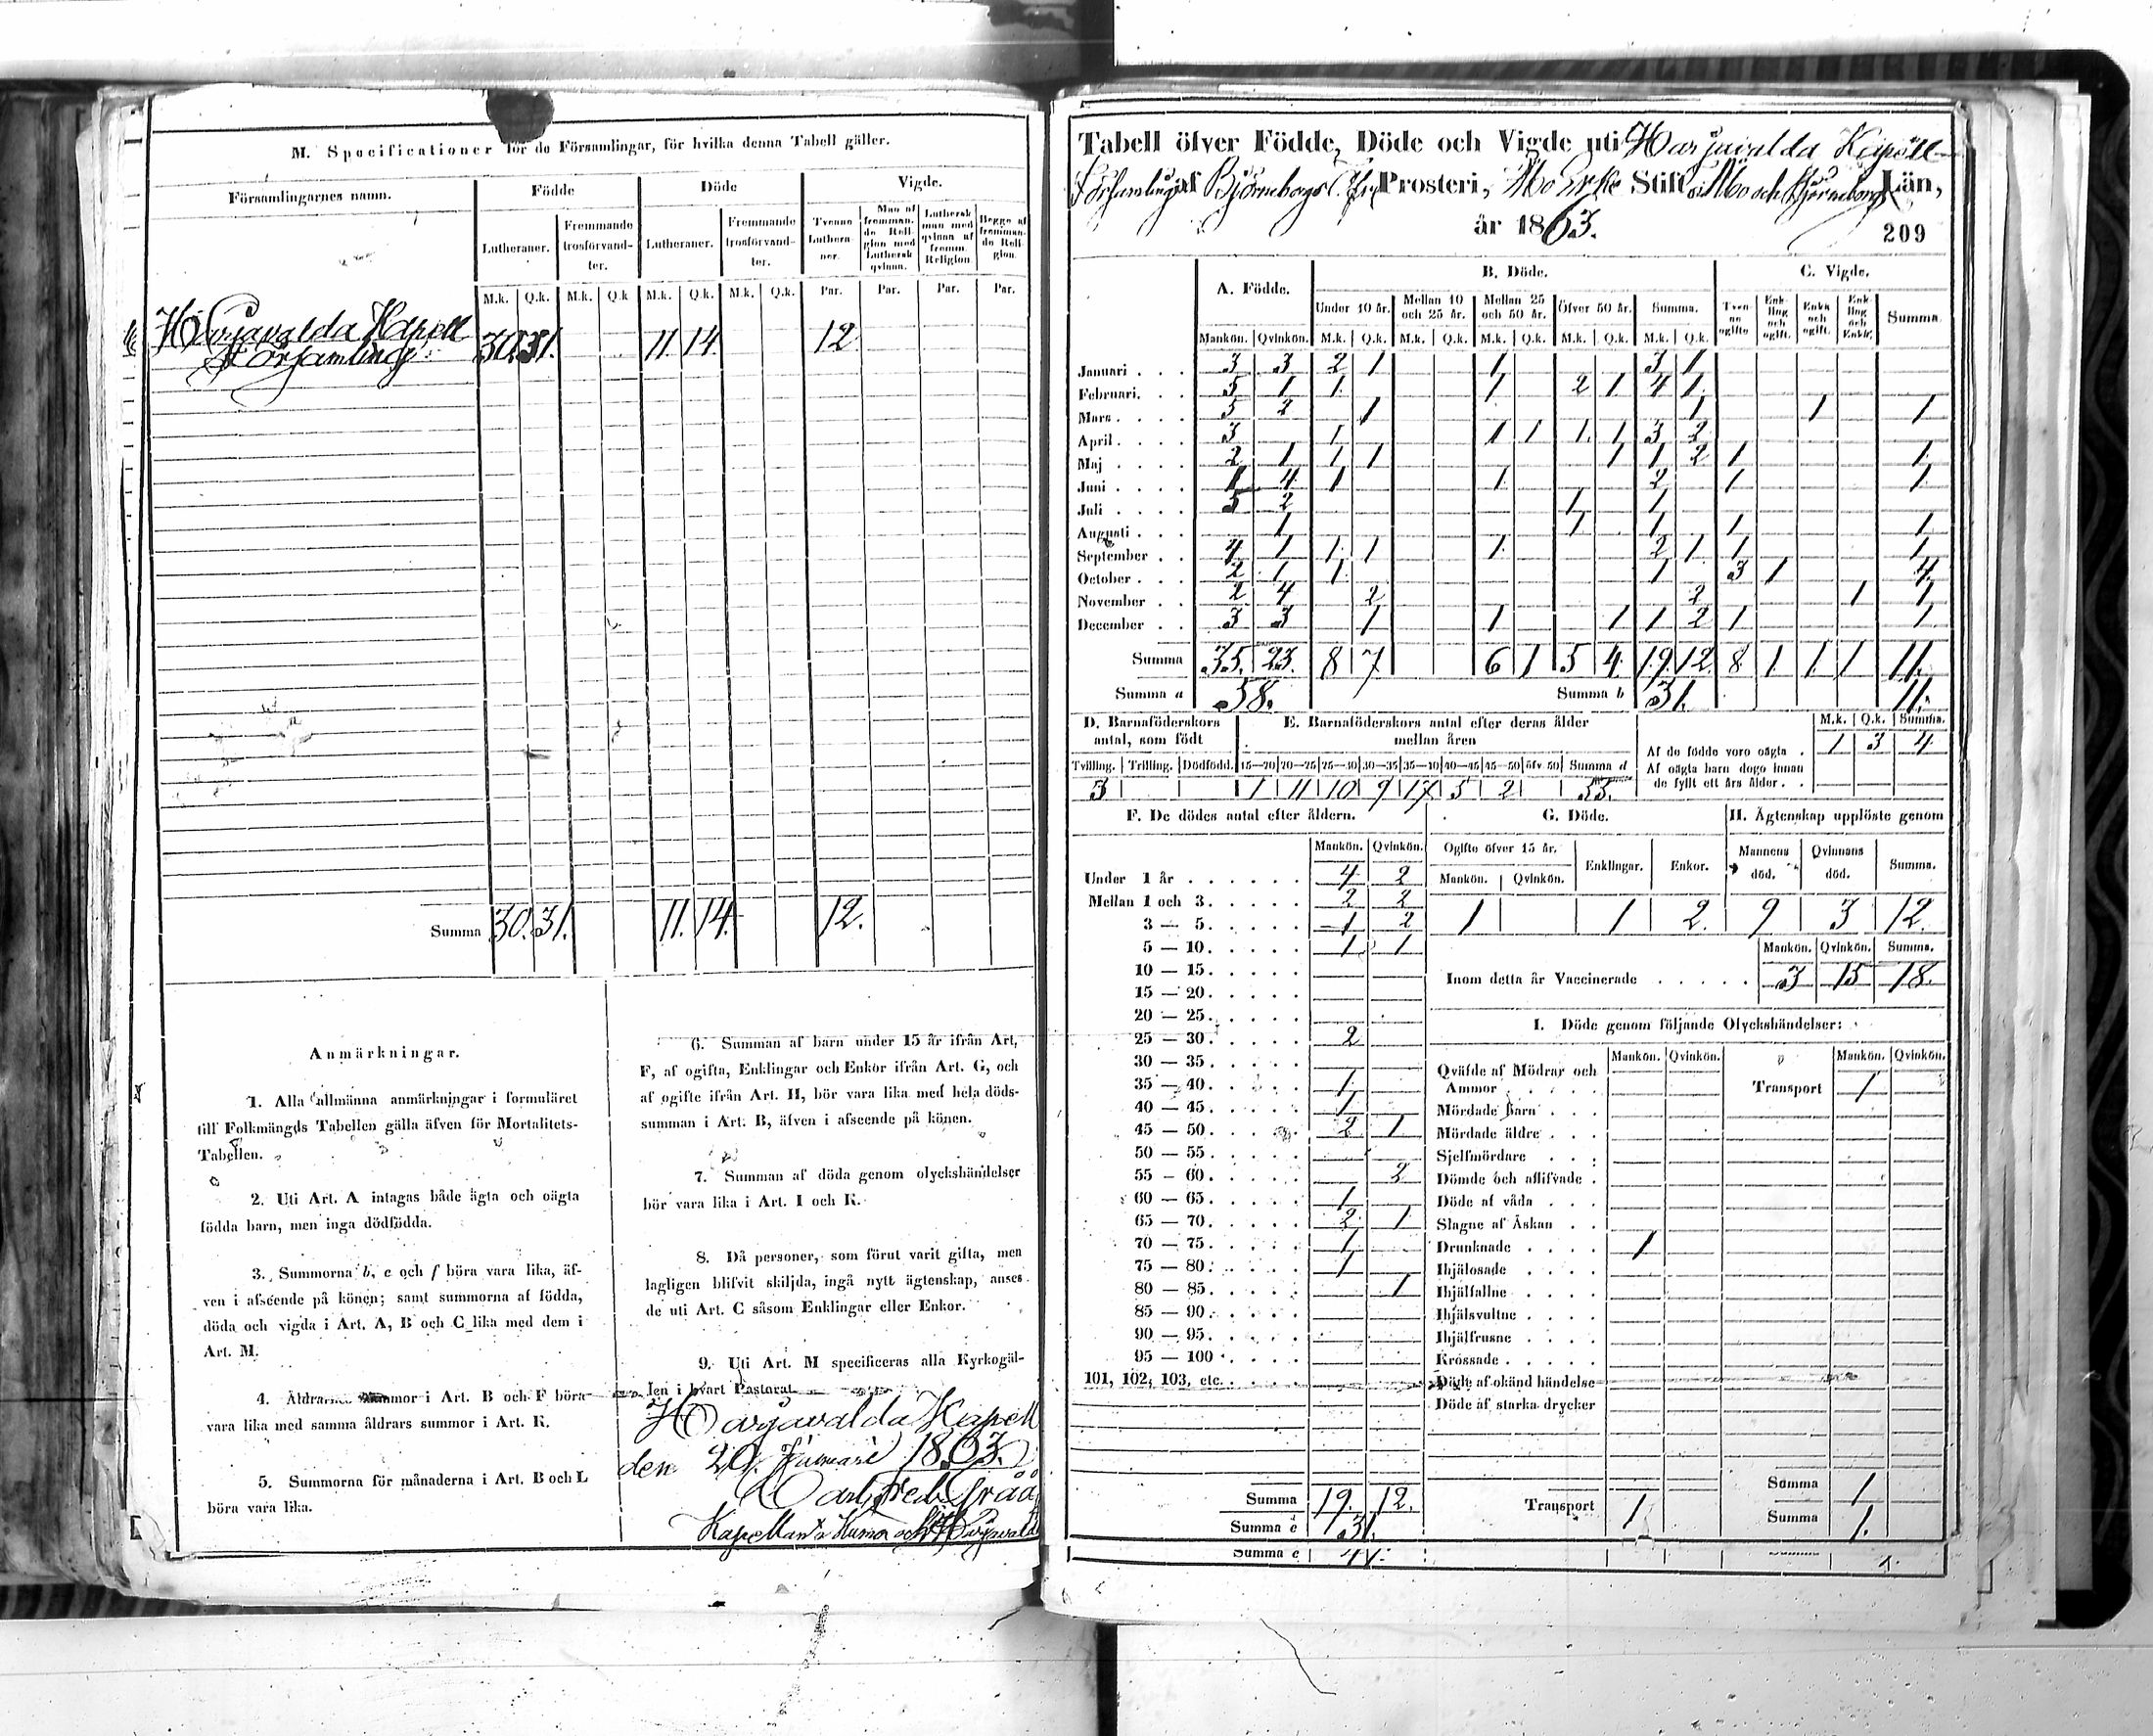 M. Specificationer för de Församlingar, för hvilka denna Tabell gäller.
Församlingarnes namn. Födde Döde Vigde.
Lutheraner. Fremmande trosförvandter. Lutheraner. Fremmande trosförvandter. Tvenne Lutheraner. Man af fremmande Religion med Luthersk qvinna. Luthersk man med qvinna af fremm. Religion Begge af fremmande Religion.
M.k. Q.k. M.k. Q.k M.k. Q.k. M.k. Q.k. Par. Par. Par. Par.
Harjavalda Kapell
Församling 30. 31. 11. 14. 12
Summa 30. 31. 11. 14. 12.
Anmärkningar.
1. Alla allmänna anmärkningar i formuläret
till Folkmängds Tabellen gälla äfven för Mortalitets-
Tabellen.
2. Uti Art. A intagas både ägta och oägta
födda barn, men inga dödfödda.
3. Summorna b, e och f böra vara lika, äf-
ven i afseende på könen; samt summorna af födda,
döda och vigda i Art. A, B och C lika med dem i
Art. M.
4. Åldrarnes summor i Art. B och F böra
vara lika med samma åldrars summor i Art. K.
5. Summorna för månaderna i Art. B och L
böra vara lika.
6. Summan af barn under 15 år ifrån Art.
F, af ogifta, Enklingar och Enkor ifrån Art. G, och
af ogifte ifrån Art. H, bör vara lika med hela döds-
summan i Art. B, äfven i afseende på könen.
7. Summan af döda genom olyckshändelser
bör vara lika i Art. I och K.
8. Då personer, som förut varit gifta, men
lagligen blifvit skiljda, ingå nytt ägtenskap, anses
de uti Art. C såsom Enklingar eller Enkor.
9. Uti Art. M specificeras alla Kyrkogäl-
len i hvart Pastorat.
Harjavalda Kapell
den 20. 1863.
Carl Fredr Gråå
Kapellan i Kumo och Harjavalda
Tabell öfver Födde, Döde och Vigde uti Harjavalda Kapell-
Församling af Björneborgs Prosteri, Åbo Erke Stift Åbo och Björneborgs Län,
år 1863.
209
A. Födde. B. Döde. C. Vigde.
Under 10 år. Mellan 10 och 25 år. Mellan 25 och 50 år. Öfver 50 år. Summa. Tvenne ogifte Enkling och ogift. Enka och ogift. Enkling och Enka. Summa.
Mankön. Qvinkön. M.k. Q.k. M.k. Q.k. M.k. Q.k. M.k. Q.k. M.k. Q.k.
Januari . . . 3 3 2 1 1 3 1
Februari. . . 5 1 1 1 2 1 4 1
Mars . . . . 5 2 1 1 1 1
April . . . . 3 1 1 1 1 1 3 2
Maj . . . . 2 1 1 1 1 1 2 1 1
Juni . . . . 1 4 1 1 2 1 1
Juli . . . . 5 2 1 1
Augusti . . . 1 1 1 1 1
September . . 4 1 1 1 1 2 1 1 1
October . . . 2 1 1 1 3 1 4
November . . 2 4 2 2 1 1
December . . 3 3 1 1 1 1 2 1 1
Summa 35. 23. 8 7 6 1 5 4. 19. 12 8 1 1 1 11.
Summa a 58. Summa b 31. 11.
D. Barnaföderskors antal, som födt
E. Barnaföderskors antal efter deras ålder mellan åren
M.k. Q.k. Summa.
Af de födde voro oägta . 1 3 4
Af oägta barn dogo innan
de fyllt ett års ålder . .
Tvilling. Trilling. Dödfödd. 15—20 20—25 25—30 30—35 35—40 40—45 45—50 öfv. 50 Summa d
3 1 11 10 9 17 5 2 55.
F. De dödes antal efter åldern.
Mankön. Qvinkön.
Under 1 år . . . . . . 4 2
Mellan 1 och 3. . . . . 2 2
3 — 5. . . . . 1 2
5 — 10. . . . . 1 1
10 — 15. . . . .
15 — 20. . . . .
20 — 25. . . . .
25 — 30. . . . . 2
30 — 35. . . . .
35 — 40. . . . . 1
40 — 45. . . . . 1
45 — 50. . . . . 2 1
50 — 55. . . . .
55 — 60. . . . . 2
60 — 65. . . . . 1
65 — 70. . . . . 2 1
70 — 75. . . . . 1
75 — 80. . . . . 1
80 — 85. . . . . 1
85 — 90. . . . .
90 — 95. . . . .
95 — 100 . . . .
101, 102, 103, etc. . . . .
Summa 19. 12.
Summa e 31.
Summa e
G. Döde.
Ogifte öfver 15 år. Enklingar. Enkor.
Mankön. Qvinkön.
1 1 2.
H. Ägtenskap upplöste genom
Mannens död. Qvinnans död. Summa.
9 3 12.
Mankön. Qvinkön. Summa.
Inom detta år Vaccinerade . . . . . 3 15 18.
I. Döde genom följande Olyckshändelser:
Mankön. Qvinkön. Mankön. Qvinkön.
Qväfde af Mödrar och
Ammor . . . . Transport 1
Mördade Barn . . .
Mördade äldre . . .
Sjelfmördare . . .
Dömde och aflifvade .
Döde af våda . . .
Slagne af Åskan . .
Drunknade . . . . 1
Ihjälosade . . . .
Ihjälfallne . . . .
Ihjälsvultne . . . .
Ihjälfrusne . . . .
Krossade . . . . .
Döde af okänd händelse
Döde af starka drycker
Summa 1
Transport 1 Summa 1.